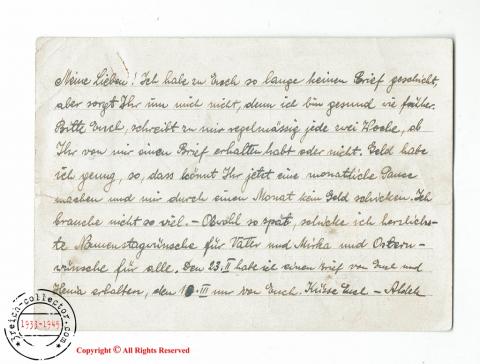 Meine Lieben! Ich habe zu Euch so lange keinen Brief geschickt,
aber sorgt Ihr um mich nicht, denn ich bin gesund wie früher.
Bitte Euch, schreibt zu mir regelmässig jede zwei Woche, ob
Ihr von mir einen Brief erhalten habt oder nicht. Geld habe
ich genug, so, dass könnt Ihr jetzt eine monatliche Pause
machen und mir durch einen Monat kein Geld schicken. Ich
brauche nicht so viel. – Obwohl so spät, schicke ich herzlich-
ste Namenstagwünsche für Vater und Mirka und Ostern-
wünsche für alle. Den 23.II habe ich einen Brief von Euch und
Henia erhalten, den 10.III nur von Euch. Küsse Euch –
3reich-collector.com
1933-1945
Copyright © All Rights Reserved